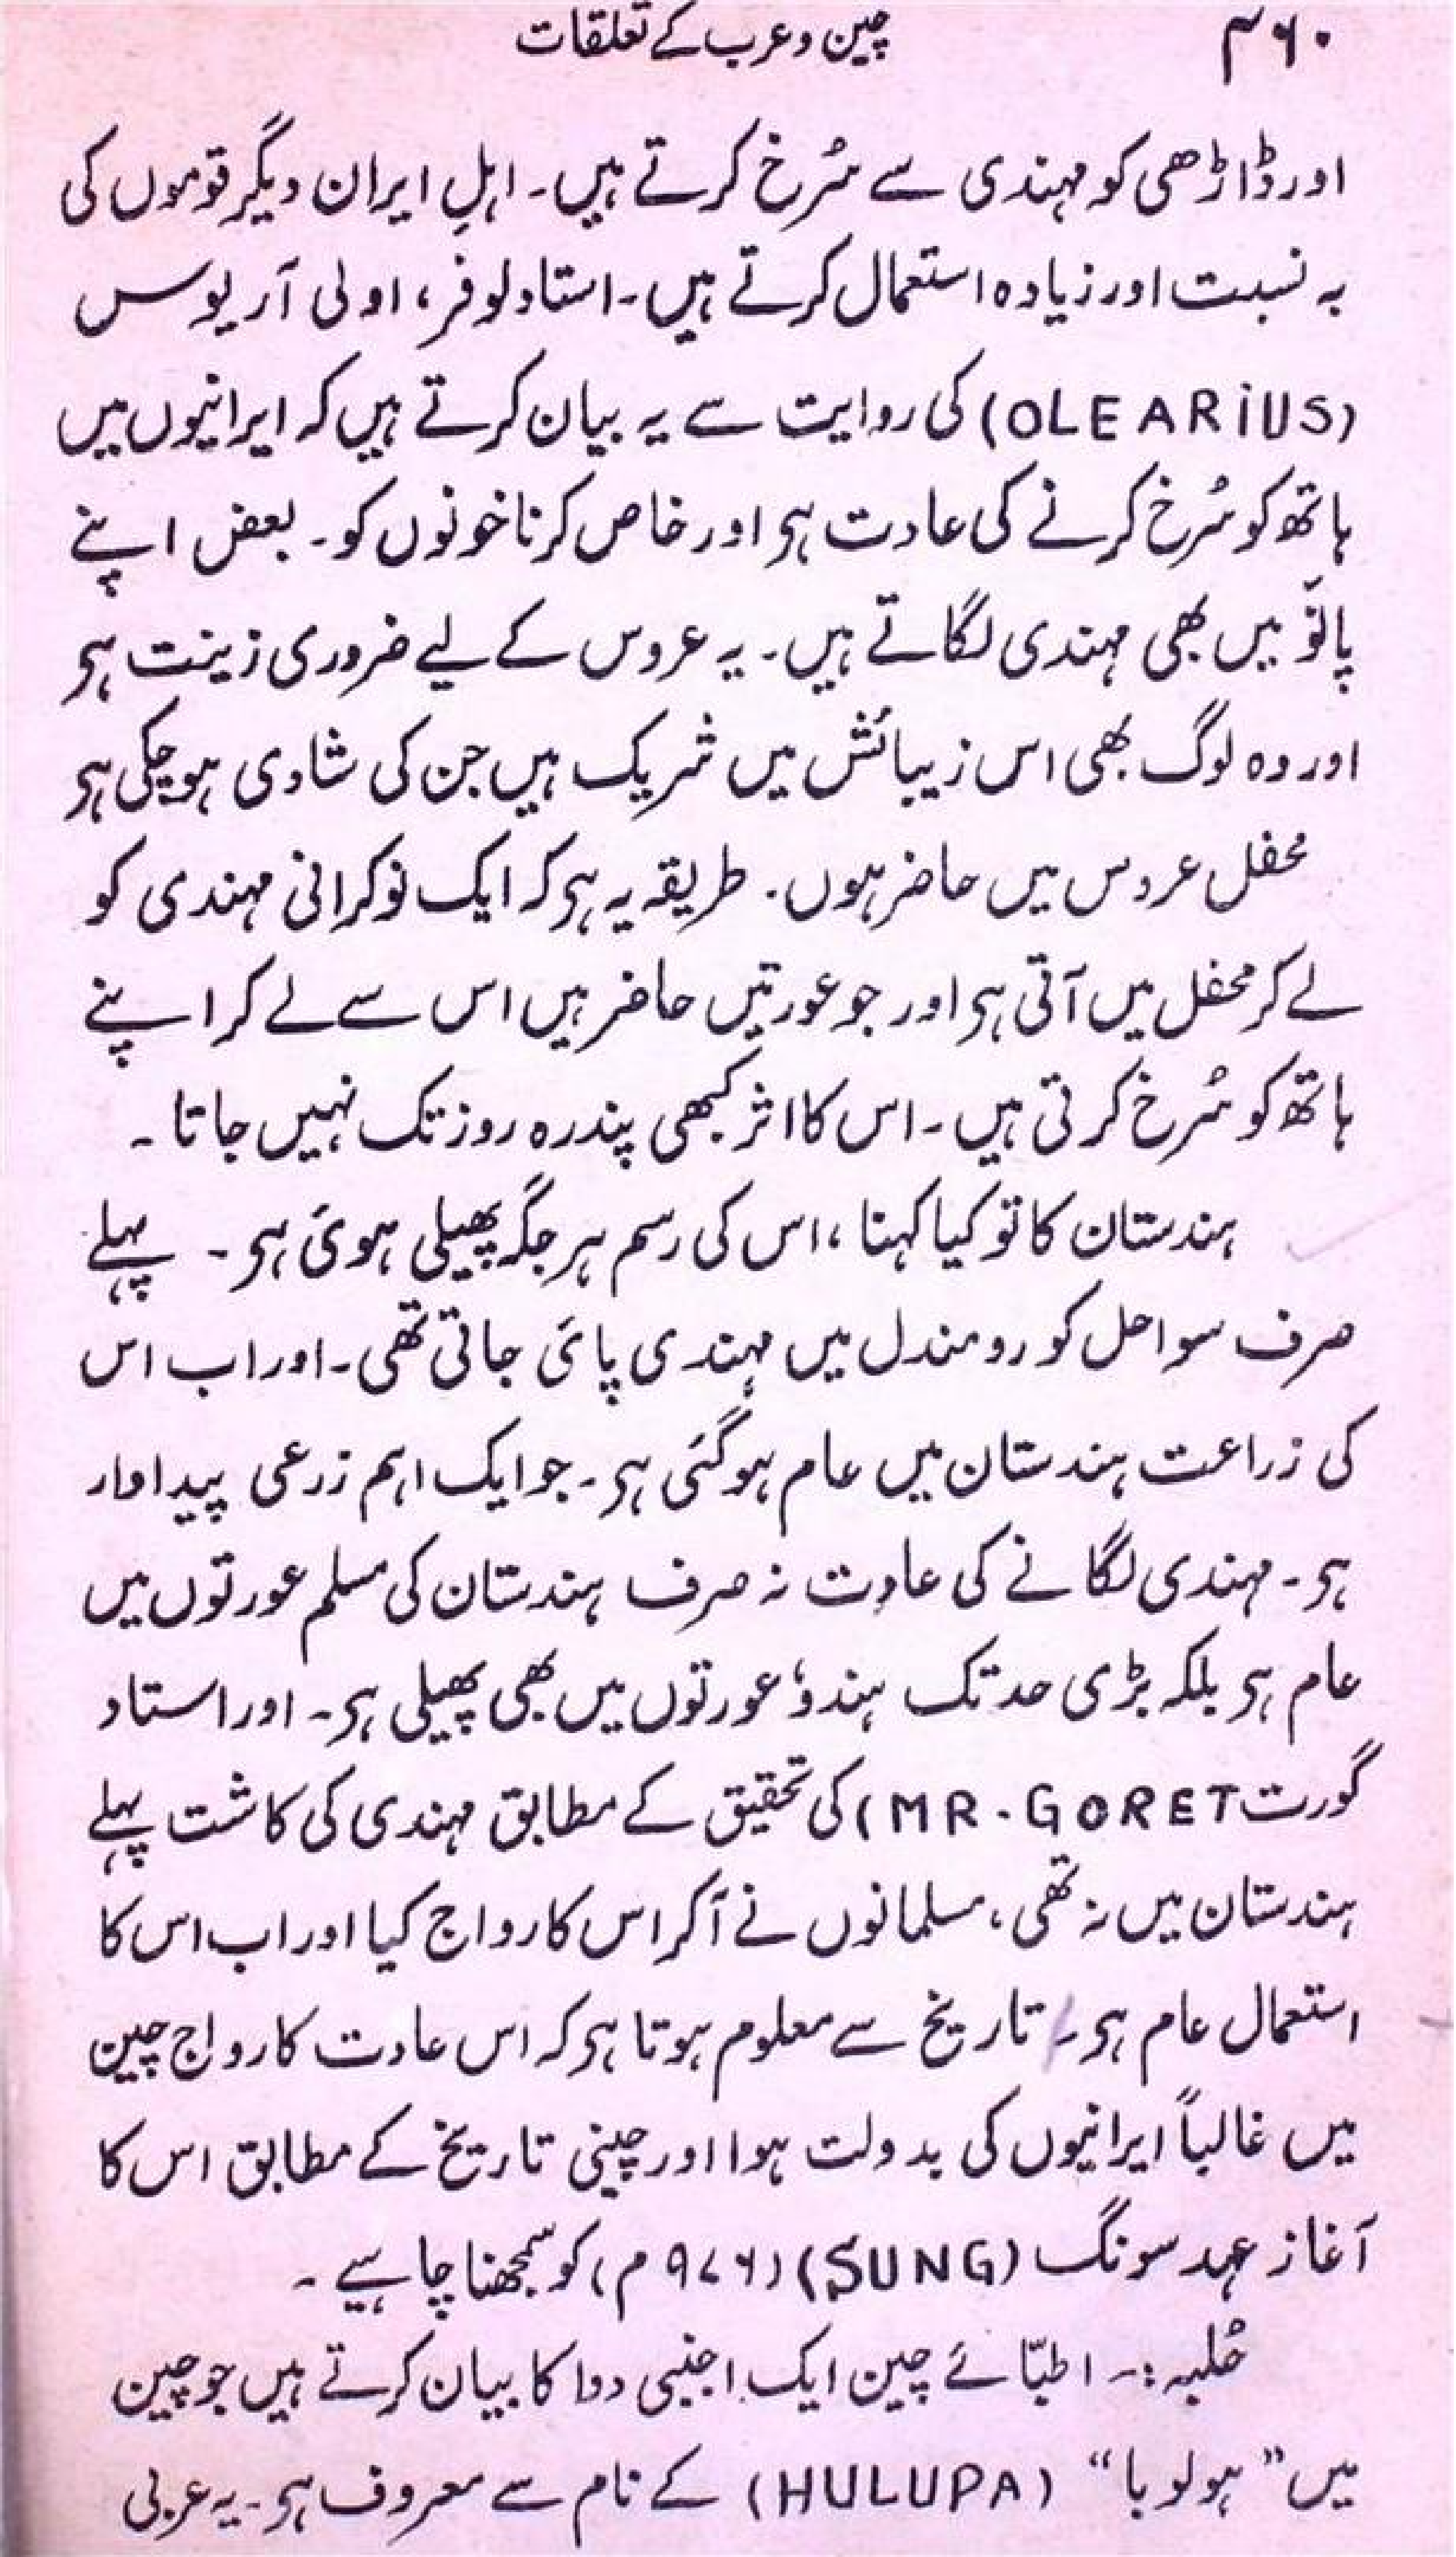 ۴۶۰ چین و عرب کے تعلقات
اور ڈاڑھی کو مہندی سے سُرخ کرتے ہیں۔ اہلِ ایران دیگر قوموں کی
بہ نسبت اور زیادہ استعمال کرتے ہیں۔ استاد لوفر، اولی آریوس
(OLEARiUS) کی روایت سے یہ بیان کرتے ہیں کہ ایرانیوں میں
ہاتھ کو سُرخ کرنے کی عادت ہی اور خاص کر ناخونوں کو۔ بعض اپنے
پانوَ میں بھی مہندی لگاتے ہیں۔ یہ عروس کے لیے ضروری زینت ہی
اور وہ لوگ بھی اس زیبائش میں شریک ہیں جن کی شادی ہوچکی ہی
محفل عروس میں حاضر ہوں۔ طریقہ یہ ہی کہ ایک نوکرانی مہندی کو
لے کر محفل میں آتی ہی اور جو عورتیں حاضر ہیں اس سے لے کر اپنے
ہاتھ کو سُرخ کرتی ہیں۔ اس کا اثر کبھی پندرہ روز تک نہیں جاتا۔
ہندستان کا تو کیا کہنا، اس کی رسم ہر جگہ پھیلی ہوئی ہی۔ پہلے
صرف سواحل کورومندل میں مہندی پائی جاتی تھی۔ اور اب اس
کی زراعت ہندستان میں عام ہوگئی ہی۔ جو ایک اہم زرعی پیداوار
ہی۔ مہندی لگانے کی عادت نہ صرف ہندستان کی مسلم عورتوں میں
عام ہی بلکہ بڑی حد تک ہندوٗ عورتوں میں بھی پھیلی ہی۔ اور استاد
گورت MR. GORET) کی تحقیق کے مطابق مہندی کی کاشت پہلے
ہندستان میں نہ تھی، مسلمانوں نے آکر اس کا رواج کیا اور اب اس کا
استعمال عام ہی۔ تاریخ سے معلوم ہوتا ہی کہ اس عادت کا رواج چین
میں غالباً ایرانیوں کی بدولت ہوا اور چینی تاریخ کے مطابق اس کا
آغاز عہد سونگ (SUNG) (۹۷۶ م) کو سمجھنا چاہیے۔
حُلبہ:۔ اطبّائے چین ایک اجنبی دوا کا بیان کرتے ہیں جو چین
میں ”ہولوبا“ (HULUPA) کے نام سے معروف ہی۔ یہ عربی